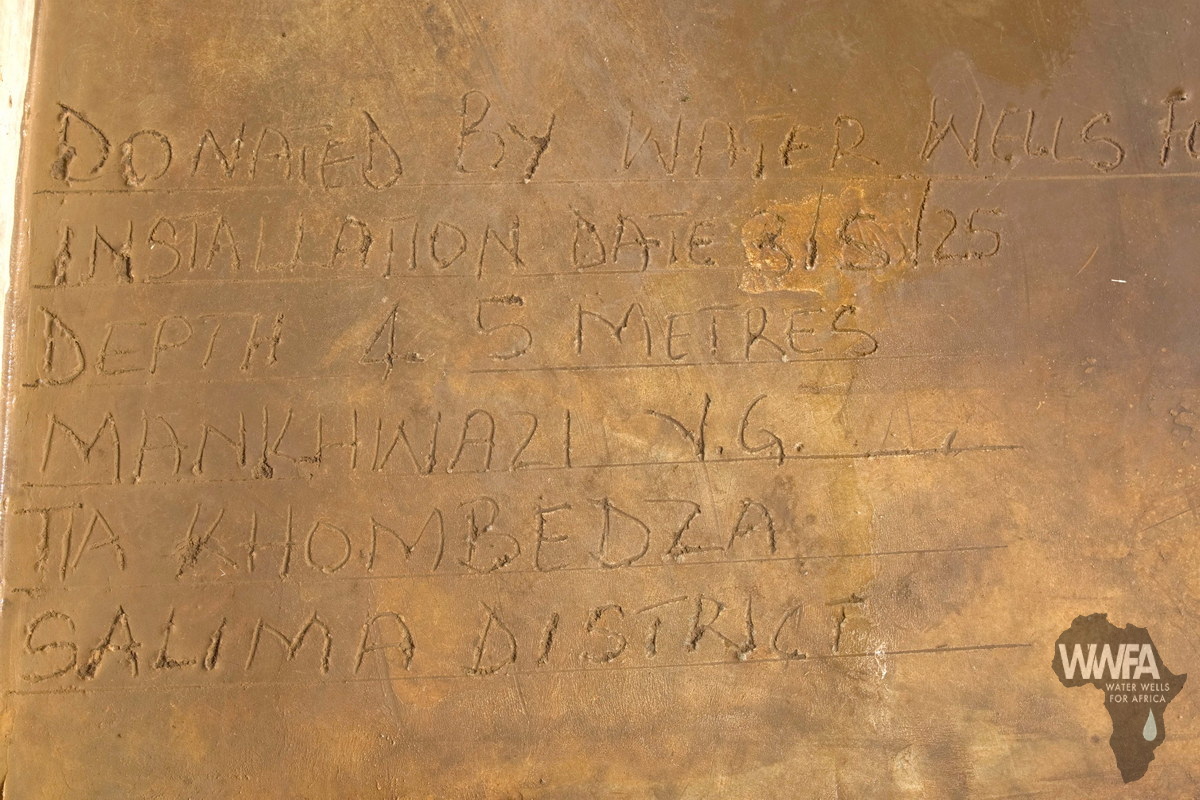 DONATED BY WATER WELLS Fo
INSTALLATION DATE 3/5/25
DEPTH 4 5 METRES
MANKHWAZI V.G.
T/A KHOMBEDZA
SALIMA DISTRICT
WWFA
WATER WELLS
FOR AFRICA